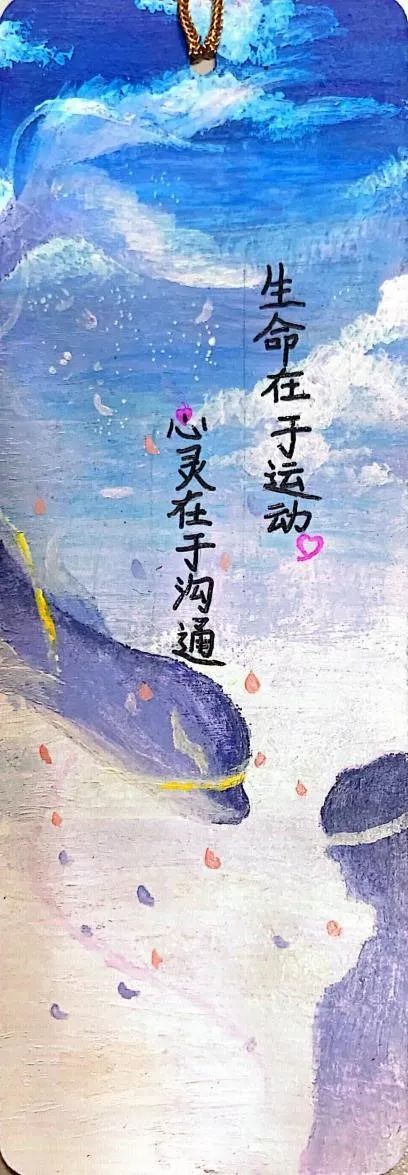 生命在于运动
心灵在于沟通